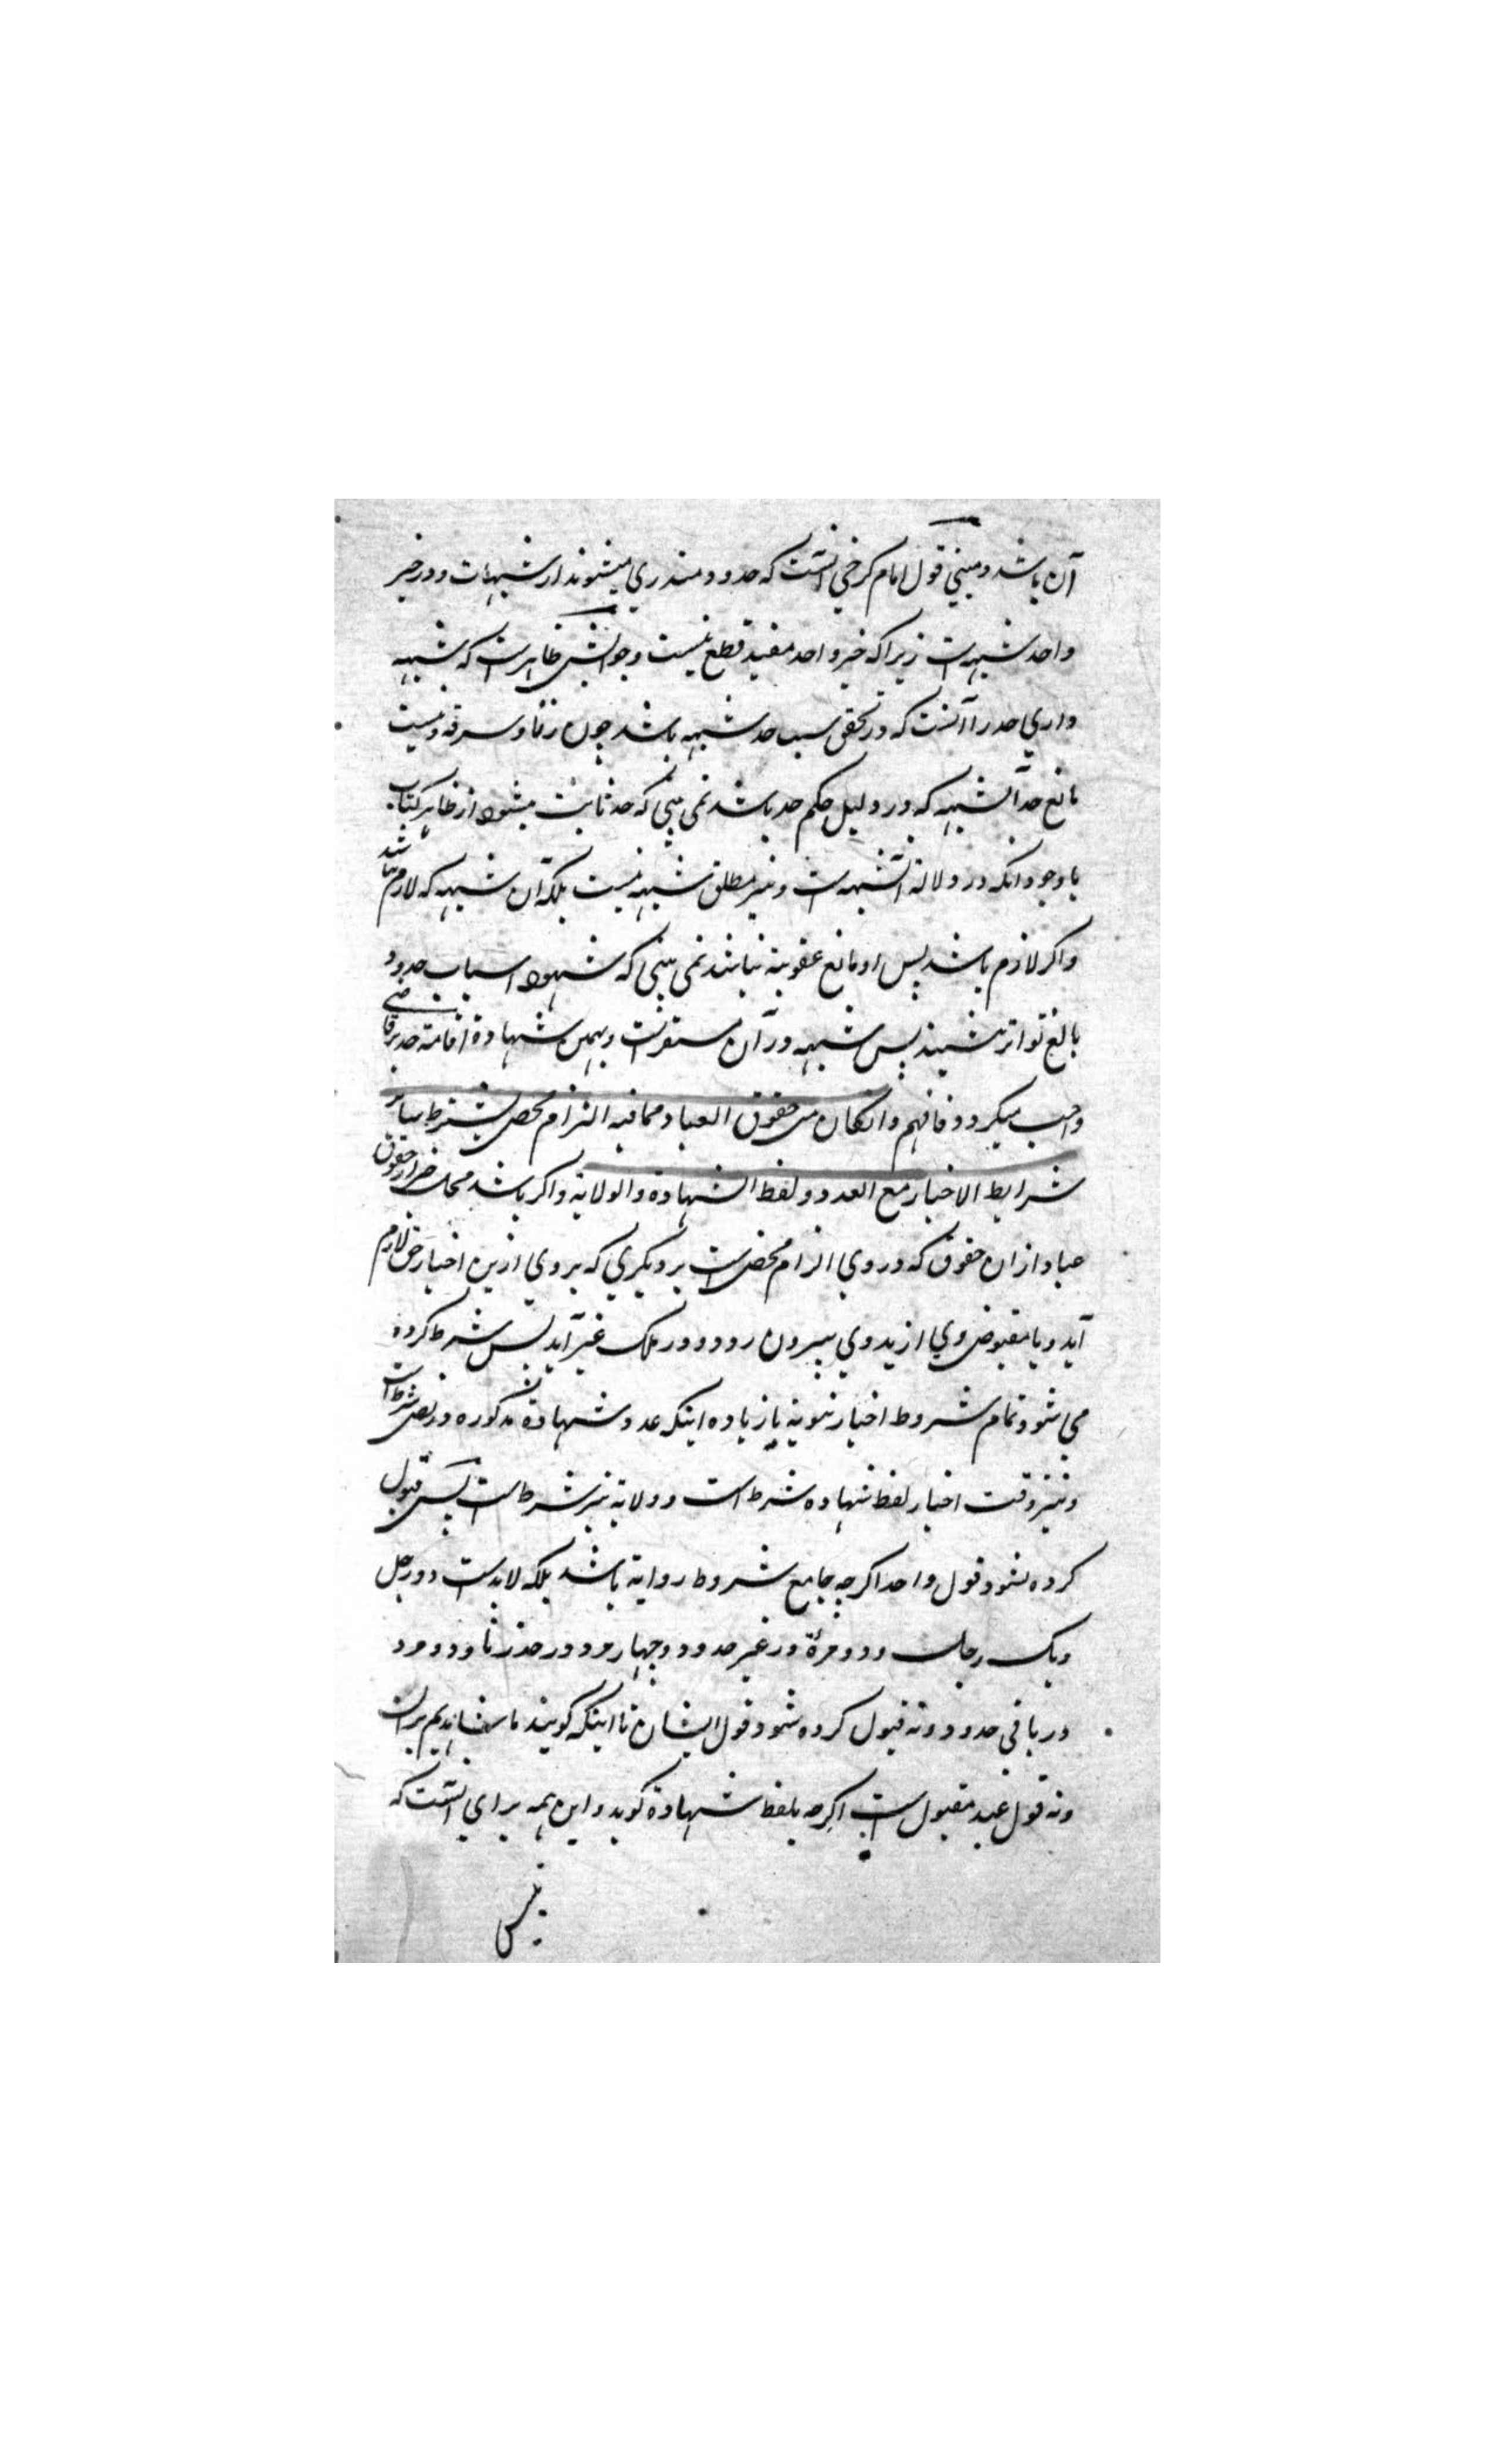 آن باشد و مبنی قول امام کرخی آنست که حدود مندری میشوند از شبهات و در خبر
واحد شبهه است زیرا که خبر واحد مفید قطع نیست و جوابش ظاهرست که شبهه
داری حد را آنست که در تحقق سبب حد شبهه باشد چون زنا و سرقه و نیست
مانع حد آن شبهه که در دلیل حکم حد باشد نمی بینی که حد ثابت میشود از ظاهر کتاب
با وجود آنکه در دلالة آن شبهه است و نیز مطلق شبهه نیست بلکه آن شبهه که لازم باشد
و اگر لازم باشد پس او مانع عقوبة نباشد نمی بینی که شهود اسباب حدود
بالغ تواتر نشیند پس شبهه در آن مستقرست و بهمین شهادة اقامة حد بر قاضی
واجب میگردد فافهم وان کان من حقوق العباد مما فیه الزام محض یشترط سائر
شرایط الاخبار مع العدد و لفظ الشهادة والولایة و اگر باشد محل خبر از حقوق
عباد ازان حقوق که در وی الزام محض است بر دیگری که بر وی ازین اخبار حق لازم
آید و یا مقبوض وی از ید وی بیرون رود و در ملک غیر آید پس شرط کرده
می شود تمام شروط اخبار نبویة با زیاده اینکه عدد شهادة مذکوره در نص شرط است
و نیز وقت اخبار لفظ شهاده شرط است و ولایة نیز شرط است پس قبول
کرده نشود قول واحد اگرچه جامع شروط روایة باشد بلکه لابدست دو رجل
و یک رجل و دو مرءة در غیر حدود و چهار مرد در حد زنا و دو مرد
در باقی حدود و نه قبول کرده شود قول ایشان تا اینکه گویند ما شاهدیم بران
و نه قول عبد مقبول است اگرچه بلفظ شهادة گوید و این همه برای آنست که